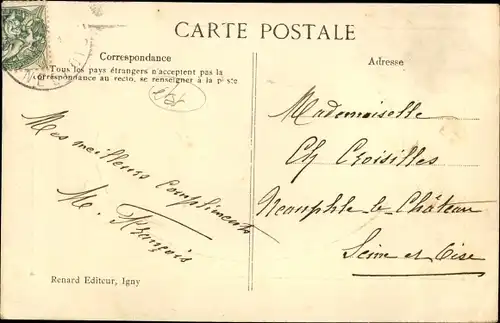 CARTE POSTALE
Correspondance
Tous les pays étrangers n'acceptent pas la
correspondance au recto, se renseigner à la poste
Adresse
Mes meilleurs compliments
M. François
Mademoiselle
Ch Croisilles
Neauphle le Château
Seine et Oise
Renard Editeur, Igny